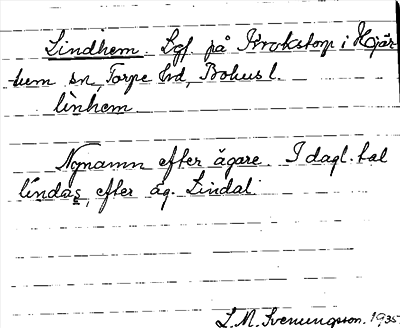 Lindhem. Lgf. på Krokstorp i Hjär-
tum sn, Torpe hd, Bohusl.
lìnhem
Nynamn efter ägare. I dagl. tal
líndàs, efter äg. Lindal.
L. M. Svenungsson. 1935